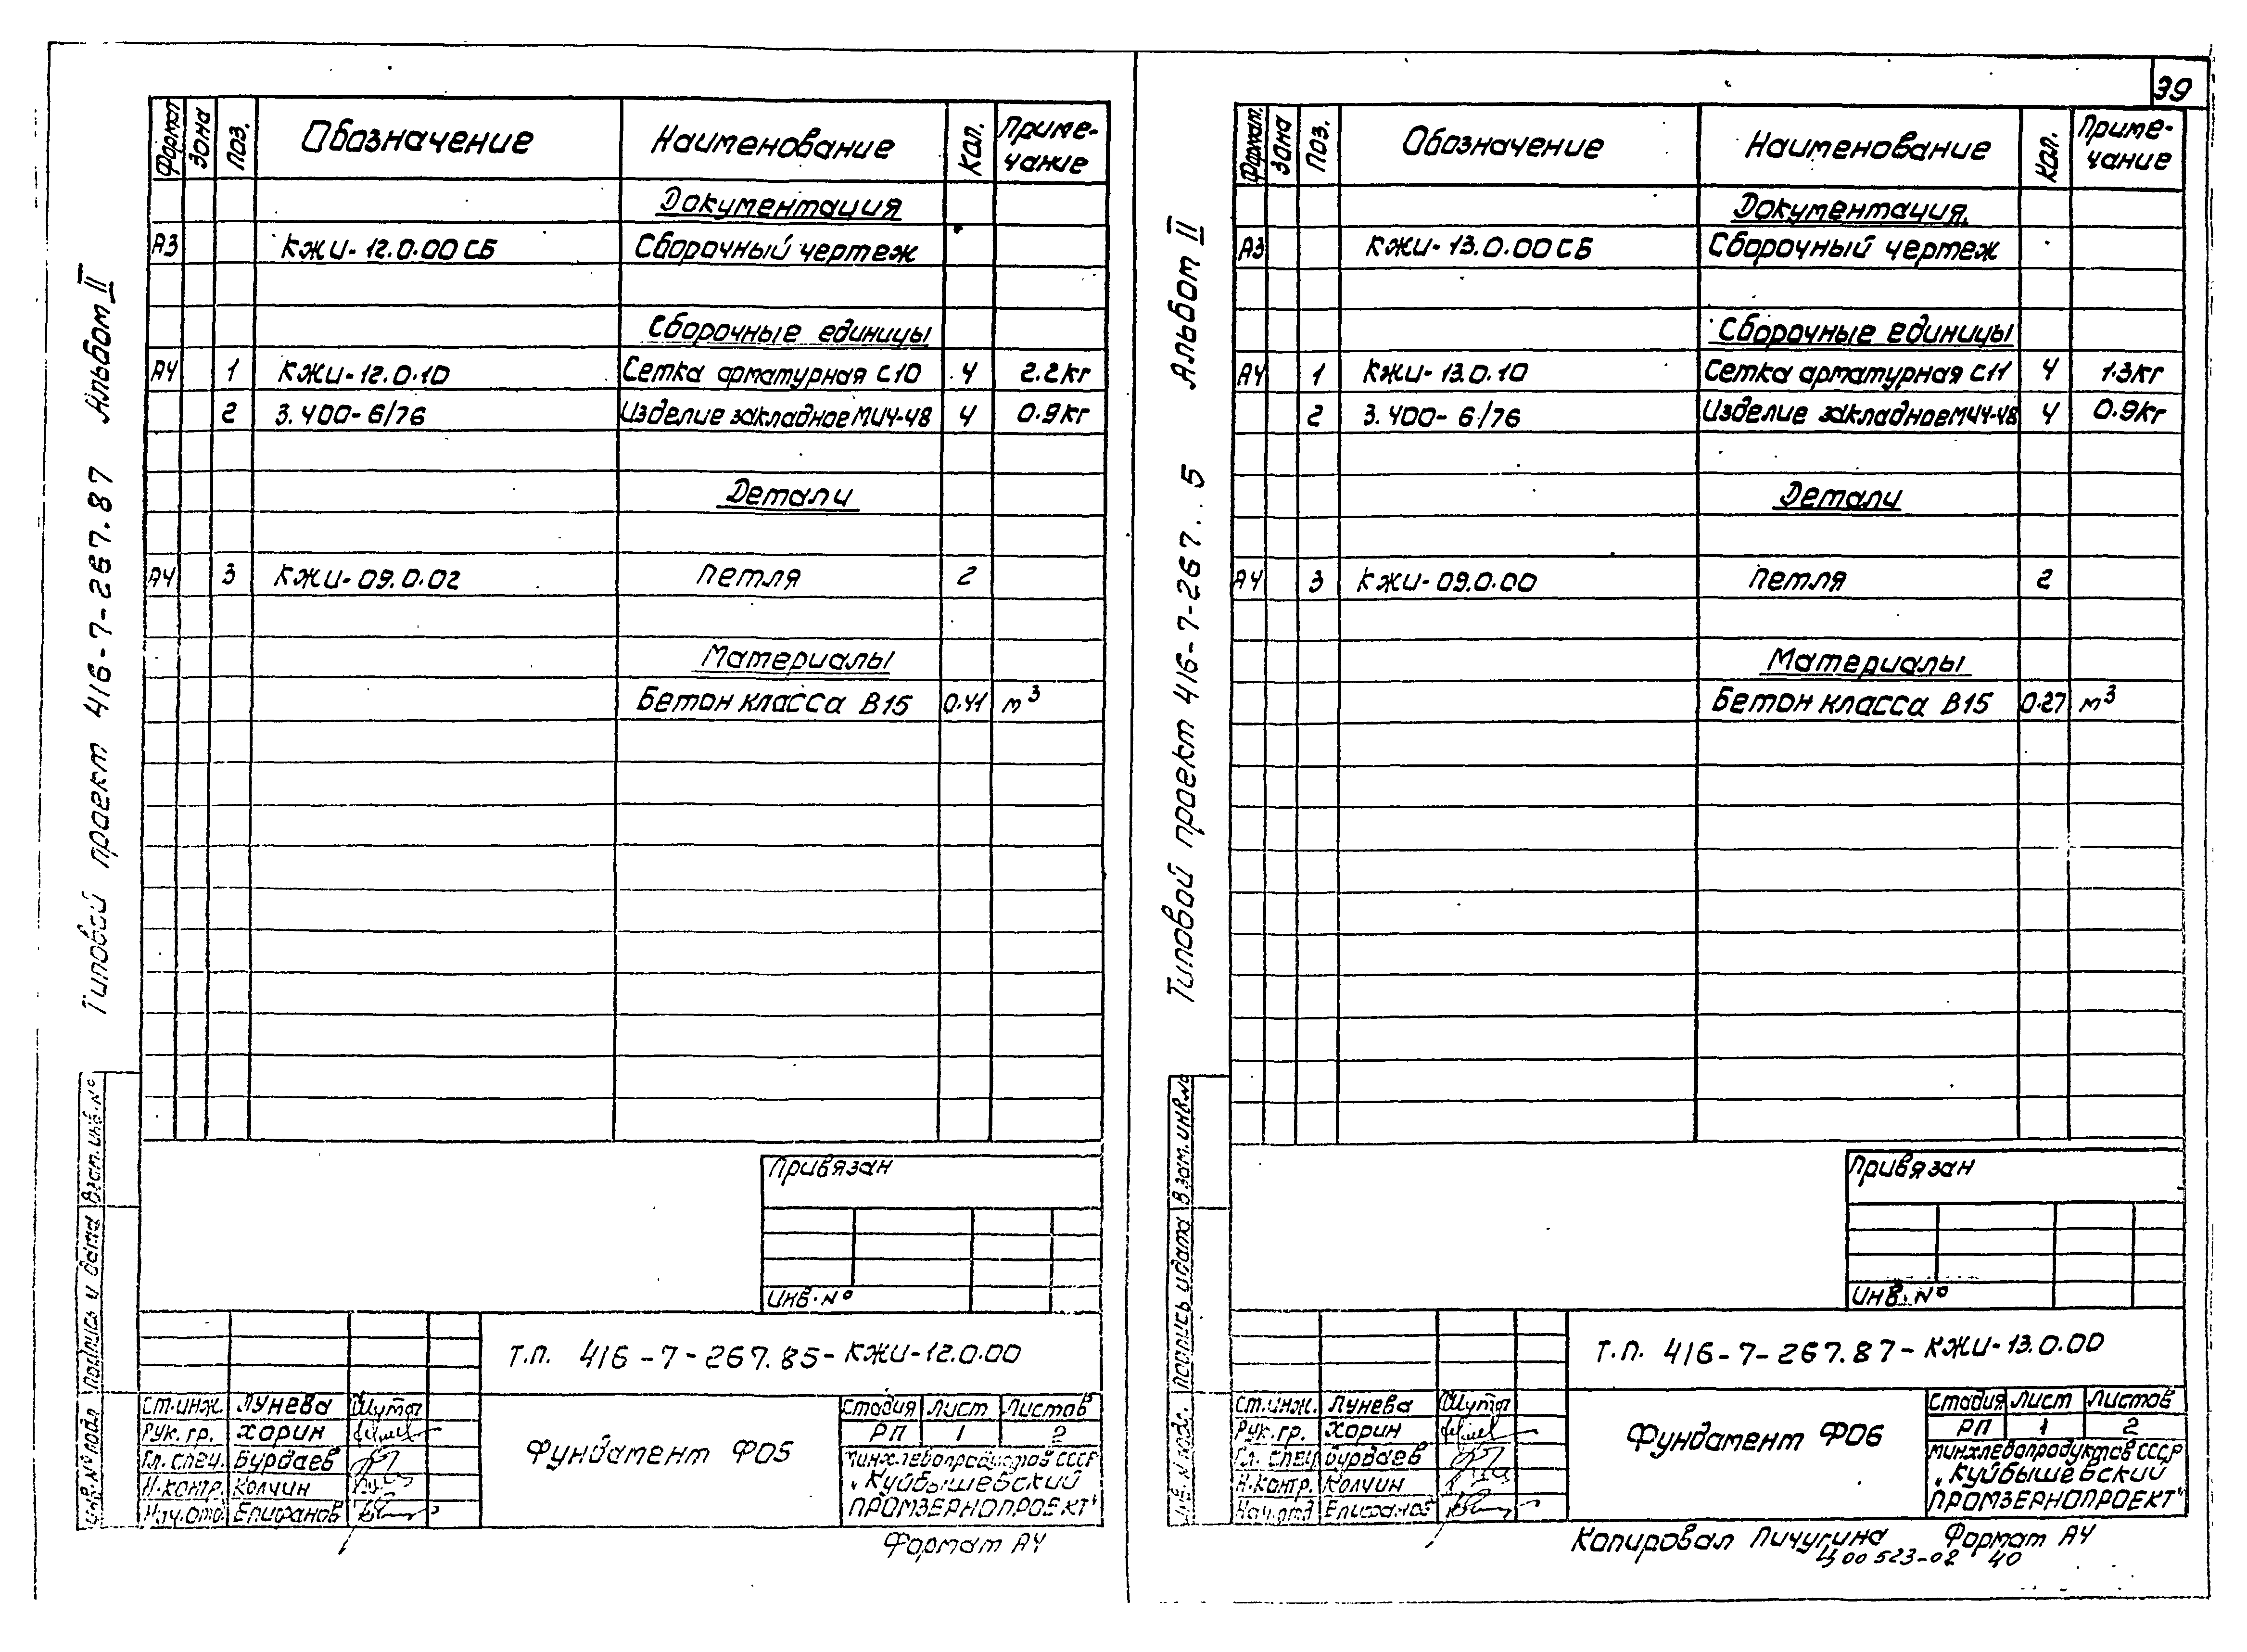 Типовой проект 416-7-267.87 Альбом II
Формат Зона Поз. Обозначение Наименование Кол. Приме-
чание
Документация
А3 КЖИ-12.0.00СБ Сборочный чертеж
Сборочные единицы
А4 1 КЖИ-12.0.10 Сетка арматурная С10 4 2.2кг
2 3.400-6/76 Изделие закладное МИ4-48 4 0.9кг
Детали
А4 3 КЖИ-09.0.02 Петля 2
Материалы
Бетон класса В15 0.41 м³
Взам. инв. №
Подпись и дата
Инв. № подл.
Привязан
Инв. №
Т.П. 416-7-267.85-КЖИ-12.0.00
Ст.инж. Лунева
Рук. гр. Харин
Гл. спец. Бурдаев
Н.контр. Колчин
Нач.отд. Епифанов
Фундамент Ф05
Стадия Лист Листов
РП 1 2
Минхлебопродуктов СССР
"Куйбышевский
ПРОМЗЕРНОПРОЕКТ"
Формат А4
39
Типовой проект 416-7-267. . 5 Альбом II
Формат. Зона Поз. Обозначение Наименование Кол. Приме-
чание
Документация.
А3 КЖИ-13.0.00СБ Сборочный чертеж
Сборочные единицы
А4 1 КЖИ-13.0.10 Сетка арматурная С11 4 1.3кг
2 3.400-6/76 Изделие закладное МИ4-48 4 0.9кг
Детали
А4 3 КЖИ-09.0.00 Петля 2
Материалы
Бетон класса В15 0.27 м³
Взам. инв.№
Подпись и дата
Инв. № подл.
Привязан
Инв. №
Т.П. 416-7-267.87-КЖИ-13.0.00
Ст.инж. Лунева
Рук. гр. Харин
Гл. спец Бурдаев
Н.контр. Колчин
Нач.отд Епифанов
Фундамент Ф06
Стадия Лист Листов
РП 1 2
Минхлебопродуктов СССР
"Куйбышевский
ПРОМЗЕРНОПРОЕКТ"
Копировал Пичугина Формат А4
Ц00523-02 40